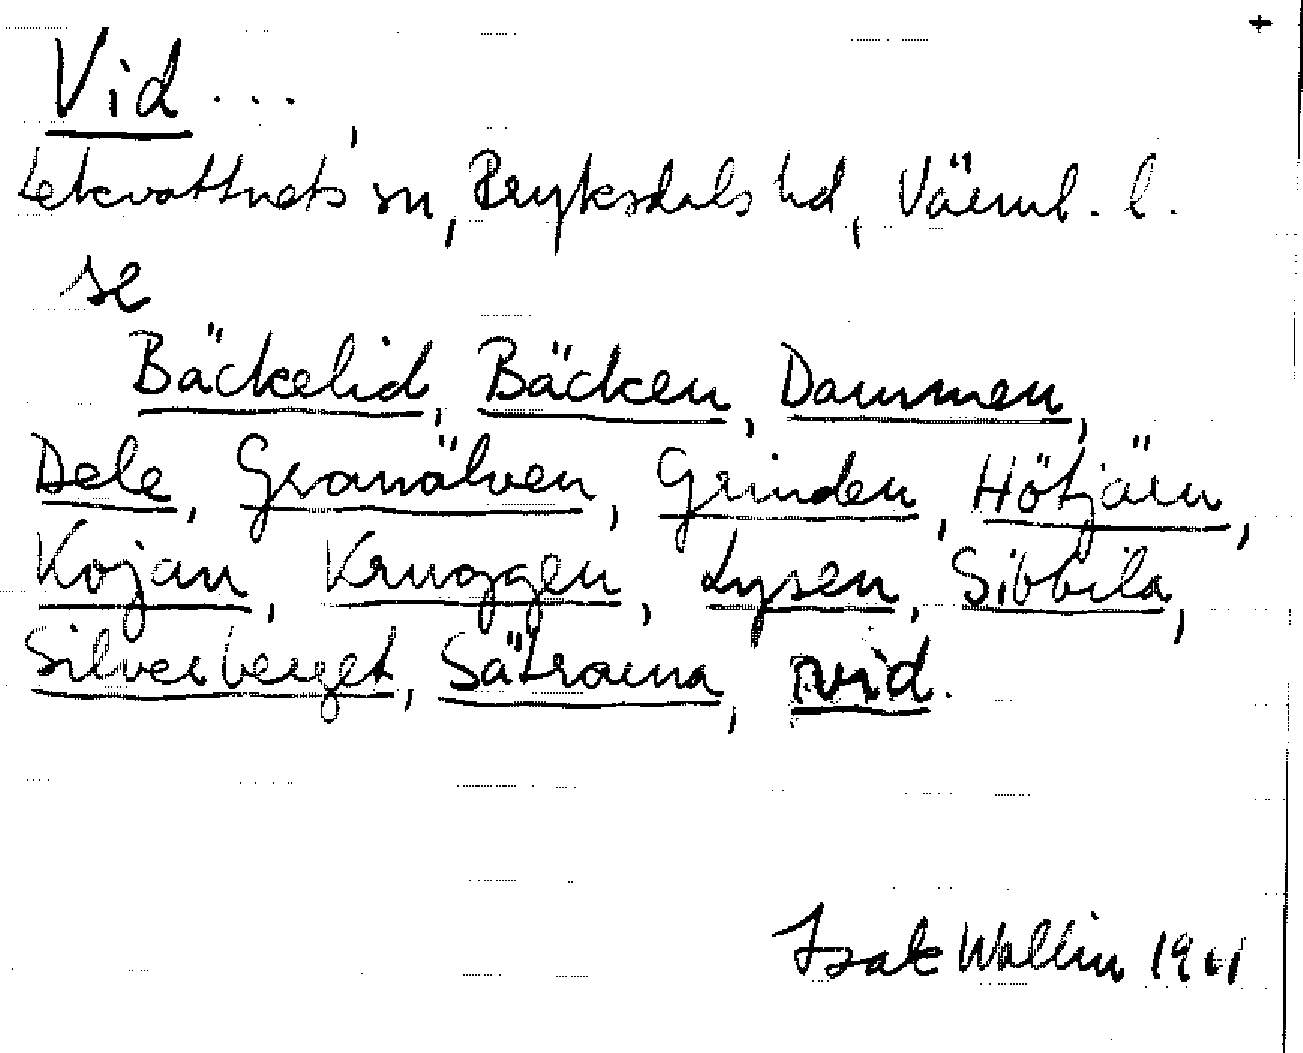 Vid ...,
Lekvattnets sn, Fryksdals hd, Värml. l.
se
Bäckelid, Bäcken, Dammen,
Dele, Granälven, Grinden, Hötjärn,
Kojan, Kruggen, Lysen, Sibbila,
Silverberget, Sätrarna, vid.
Isak Wallin